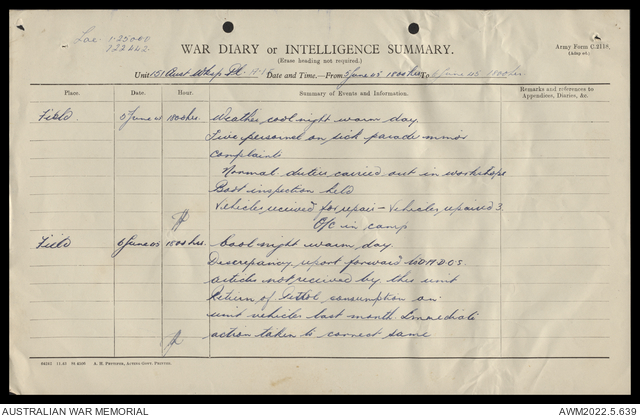 Lae 1-25000
722442
WAR DIARY or INTELLIGENCE SUMMARY.
(Erase heading not required.)
Army Form C.2118,
Unit 151 Aust Wksp Pl Date and Time.—From 5 June 45 1800 hrs To 6 June 45 1800 hrs
Place. Date. Hour. Summary of Events and Information. Remarks and references to Appendices, Diaries, &c.
Field. 5 June 45 1800 hrs. Weather cool night warm day.
Five personnel on sick parade minor
complaints
Normal duties carried out in workshops
Boot inspection held
Vehicles received for repair - Vehicles repaired 3.
O/C in camp
Field 6 June 45 1800 hrs. Cool night warm day.
Discrepancy report forward to D.A.D.O.S.
articles not received by this unit
Return of Petrol consumption on
unit vehicles last month. Immediate
action taken to correct same
AUSTRALIAN WAR MEMORIAL
AWM2022.5.639